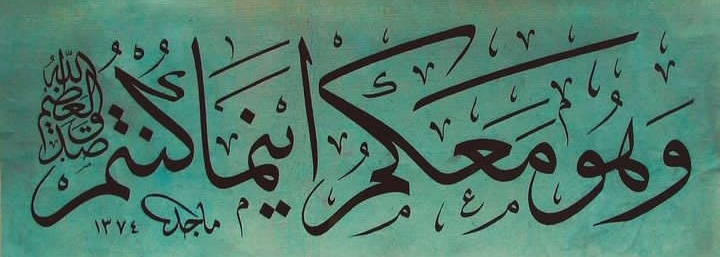 وَهُوَ مَعَكُمْ اَيْنَمَا كُنْتُمْ
صدق الله العظيم
ماجد ١٣٧٤